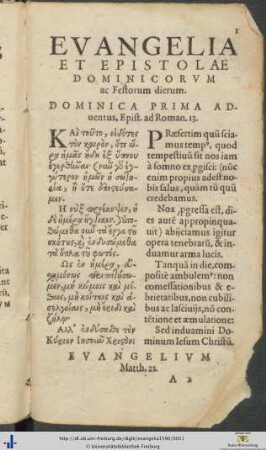 1
EVANGELIA
ET EPISTOLAE
DOMINICORVM
ac Festorum dierum.
DOMINICA PRIMA AD-
uentus, Epist. ad Roman. 13.
Καὶ τοῦτο, εἰδότες
τὸν καιρὸν, ὅτι ὥρα
ἡμᾶς ἤδη ἐξ ὕπνου
ἐγερθῆναι· (νῦν γὰρ ἐγ-
γύτερον ἡμῶν ἡ σωτη-
ρία, ἢ ὅτε ἐπιστεύσα-
μεν.
Ἡ νὺξ προέκοψεν, ἡ
δὲ ἡμέρα ἤγγικεν.
τὰ ἔργα τοῦ
σκότους, ἐνδυσώμεθα
τὰ ὅπλα τοῦ φωτός.
Ὡς ἐν ἡμέρᾳ, εὐ-
σχημόνως περιπατήσω-
μεν, μὴ κώμοις καὶ μέ-
θαις, μὴ κοίταις καὶ ἀ-
σελγείαις, μὴ ἔριδι καὶ
ζήλῳ·
Ἀλλ' ἐνδύσασθε τὸν
Κύριον Ἰησοῦν Χριστόν.
Præsertim quū scia-
mus tempꝰ, quod
tempestiuū sit nos iam
à somno expgisci: (nūc
enim propius adest no-
bis salus, quàm tū quū
credebamus.
Nox pgressa est, di-
es autē appropinqua-
uit) abijciamus igitur
opera tenebrarū, & in-
duamur arma lucis.
Tanquā in die, com-
positè ambulemꝰ: non
comessationibus & e-
brietatibus, non cubili-
bus ac lasciuijs, nō con-
tētione et æmulatione:
Sed induamini Do-
minum Iesum Christū.
EVANGELIVM
Matth. 21.
A 2
© Universitätsbibliothek Freiburg